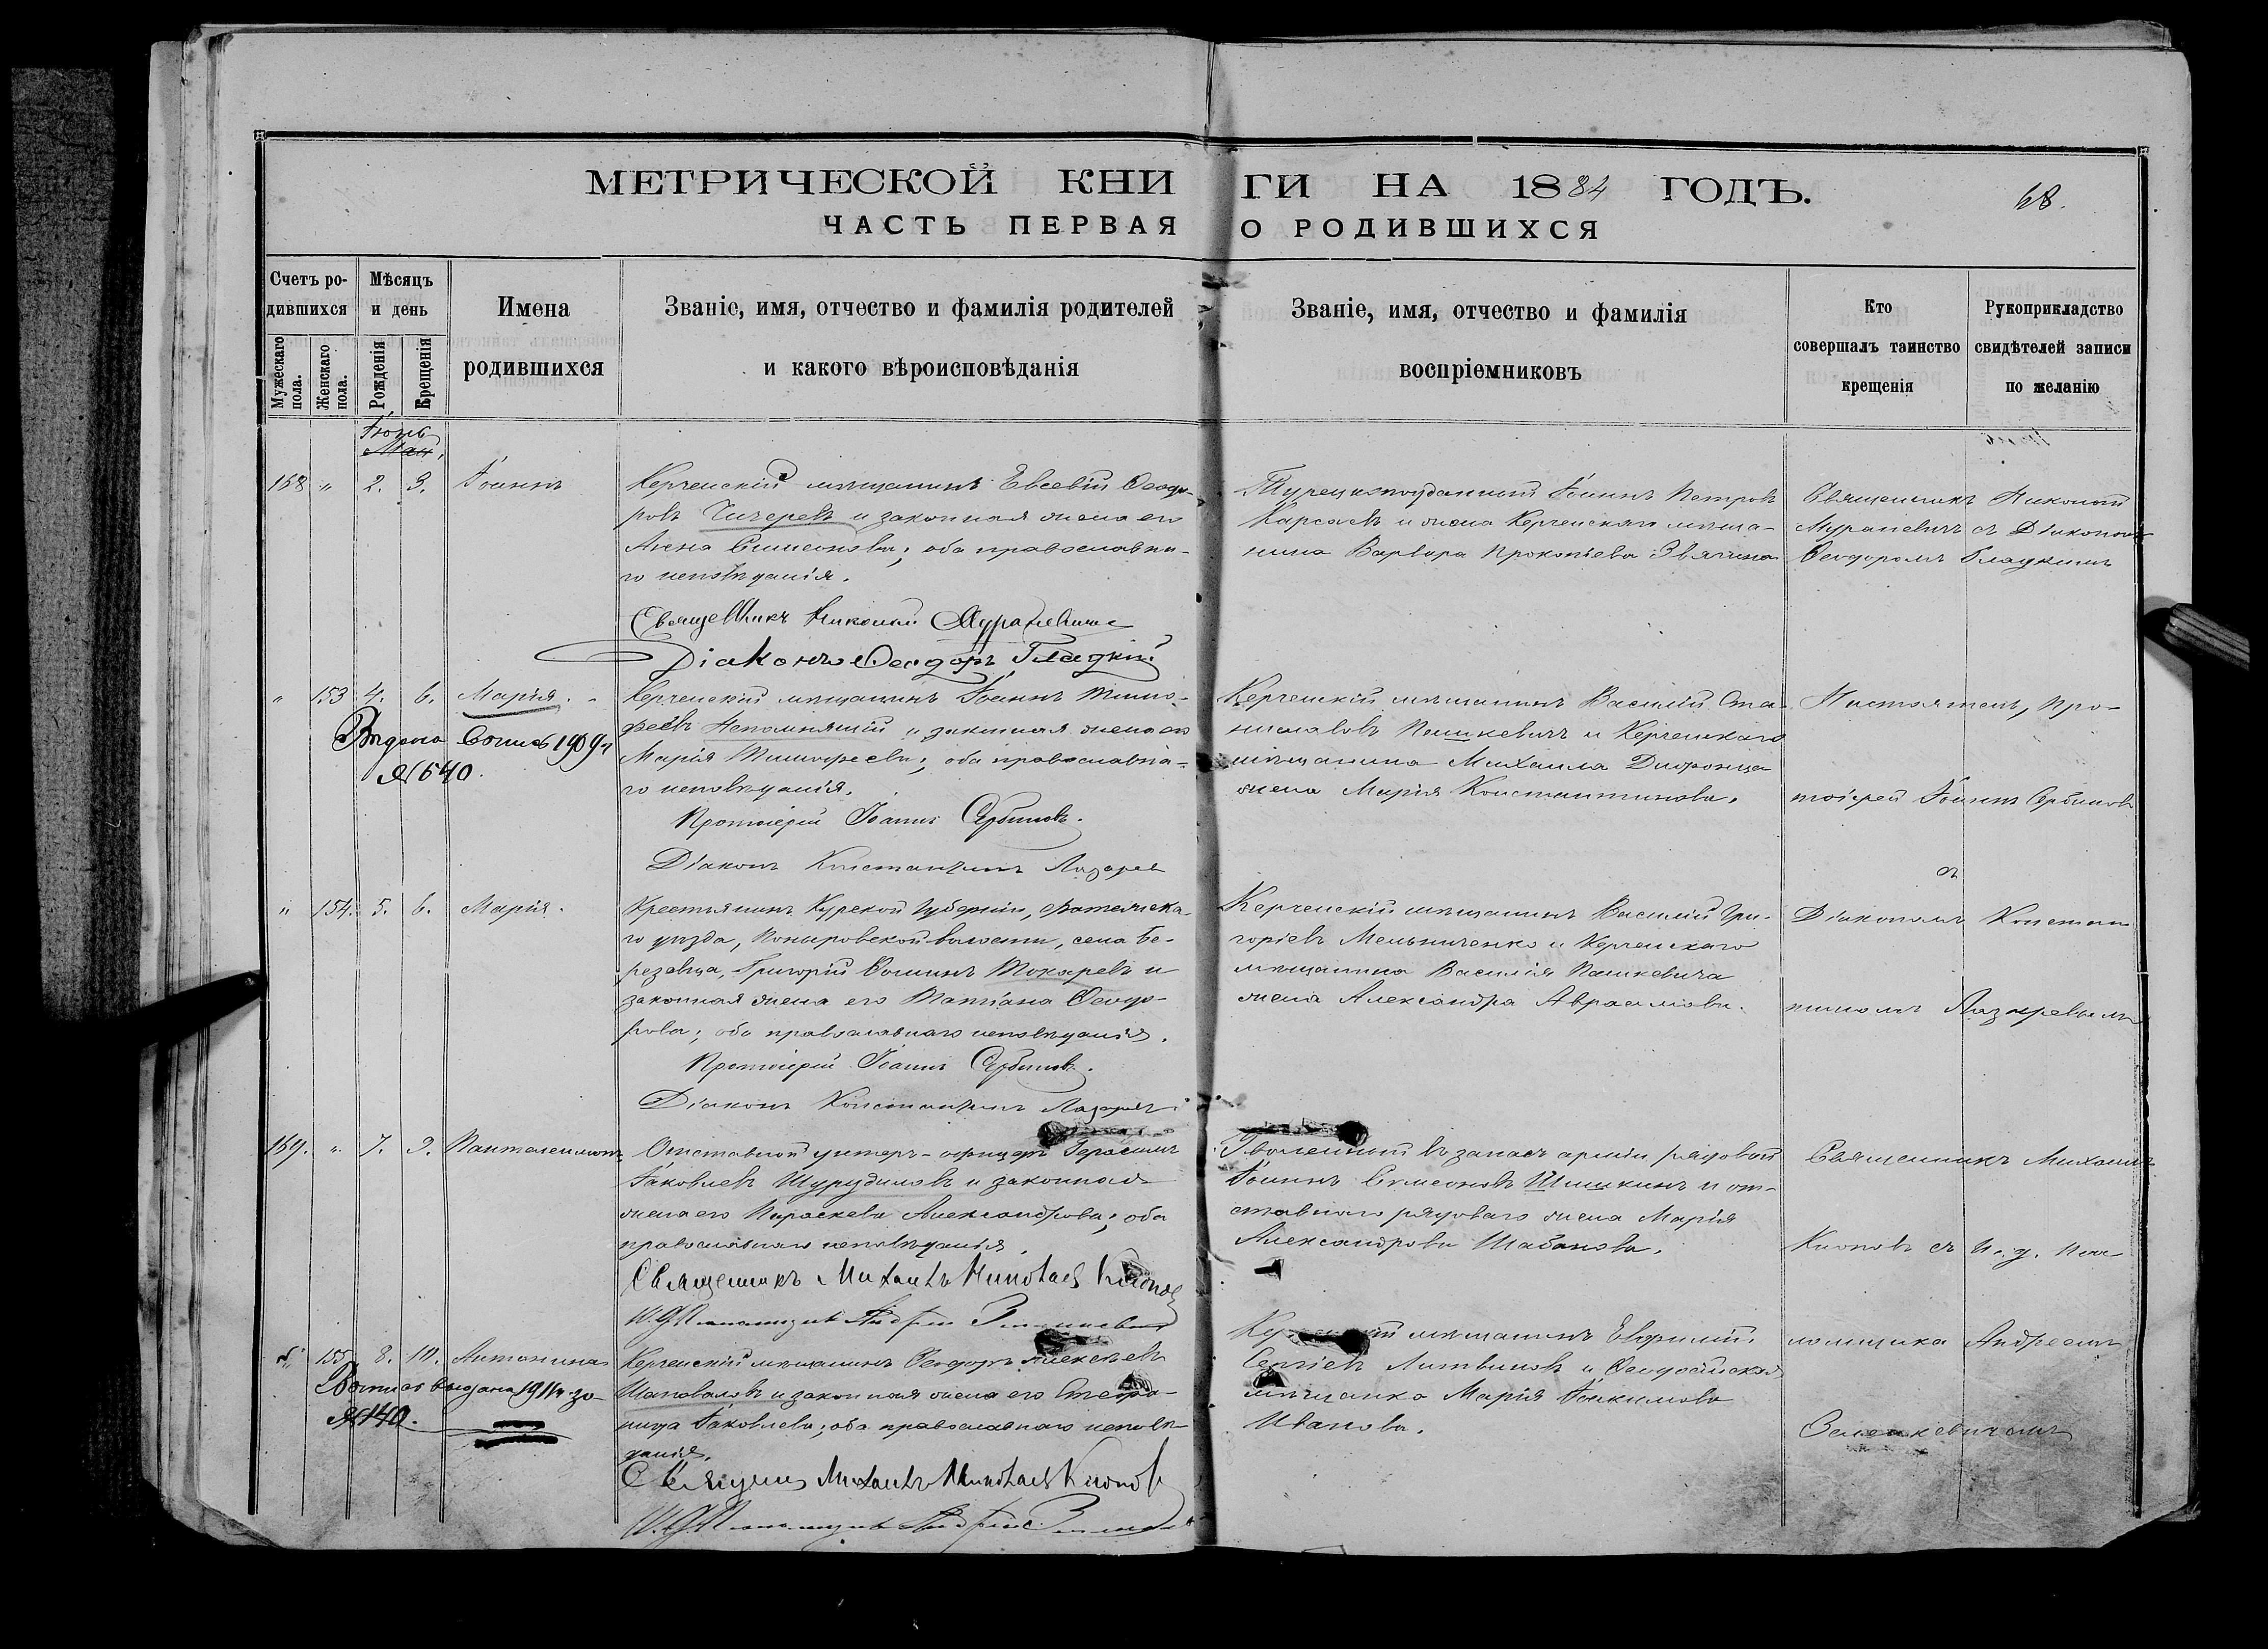 МЕТРИЧЕСКОЙ КНИГИ НА 1884 ГОДЪ.
68.
ЧАСТЬ ПЕРВАЯ О РОДИВШИХСЯ
Счетъ ро-
дившихся
Мужескаго
пола.
Женскаго
пола.
Мѣсяцъ
и день
Рожденія
Крещенія
Имена
родившихся
Званіе, имя, отчество и фамилія родителей
и какого вѣроисповѣданія
Званіе, имя, отчество и фамилія
воспріемниковъ
Кто
совершалъ таинство
крещенія
Рукоприкладство
свидѣтелей записи
по желанію
Май
158 „ 2. 3. Іоаннъ
Керченскій мѣщанинъ Евсевій Ѳеодо-
ровъ Чичеревъ и законная жена его
Анна Симеонова; оба православна-
го исповѣданія.
Священникъ Николай Мураневичъ
Діаконъ Ѳеодоръ Гладкій
Турецкоподданный Іоаннъ Петровъ
и жена Керченскаго мѣща-
нина Варвара Прокопіева
Священникъ Николай
Мураневичъ съ Діакономъ
Ѳеодоромъ Гладкимъ
„ 153 4. 6. Марія.
Выдана 1909 г.
№ 640.
Керченскій мѣщанинъ Іоаннъ Тимо-
феевъ Непомнящій и законная жена его
Марія Тимофеева; оба православна-
го исповѣданія.
Протоіерей Іоаннъ Сербиновъ.
Діаконъ Константинъ Лазаревъ
Керченскій мѣщанинъ Василій Ста-
ниславовъ Пашкевичъ и Керченскаго
мѣщанина Михаила
жена Марія Константинова.
Настоятель, про-
тоіерей Іоаннъ Сербиновъ
съ
„ 154. 5. 6. Марія.
Крестьянинъ Курской губерніи, Фатежска-
го уѣзда, Поныровской волости, села Бе-
резовца, Григорій Ѳоминъ Токаревъ и
законная жена его Татіана Ѳеодо-
рова; оба православнаго исповѣданія.
Протоіерей Іоаннъ Сербиновъ.
Діаконъ Константинъ Лазаревъ
Керченскій мѣщанинъ Василій Гри-
горіевъ Мельниченко и Керченскаго
мѣщанина Василія Пашкевича
жена Александра Авраамова.
Діакономъ Констан-
тиномъ Лазаревымъ
159. „ 7. 9. Пантелеимонъ
Отставной унтеръ-офицеръ Герасимъ
Іаковлевъ Шурудиловъ и законная
жена его Параскева Александрова; оба
православнаго исповѣданія.
Священникъ Михаилъ Николаев Клоповъ
Уволенный въ запасъ арміи рядовой
Іоаннъ Симеоновъ Шишкинъ и от-
ставнаго рядоваго жена Марія
Александрова Шабанова.
Священникъ Михаилъ
Клоповъ съ и. д. пса-
„ 155. 8. 10. Антонина
выдана 1911 г. за
№ 140.
Керченскій мѣщанинъ Ѳеодоръ Алексѣевъ
Шаповаловъ и законная жена его Стефа-
нида Іаковлева; оба православнаго исповѣ-
данія.
Михаилъ Николаевъ Клоповъ
мѣщанинъ Евфимій
Сергіевъ Литвиновъ и Ѳеодосійская
мѣщанка Марія Іоакимова
Иванова.
ломщика Андреемъ